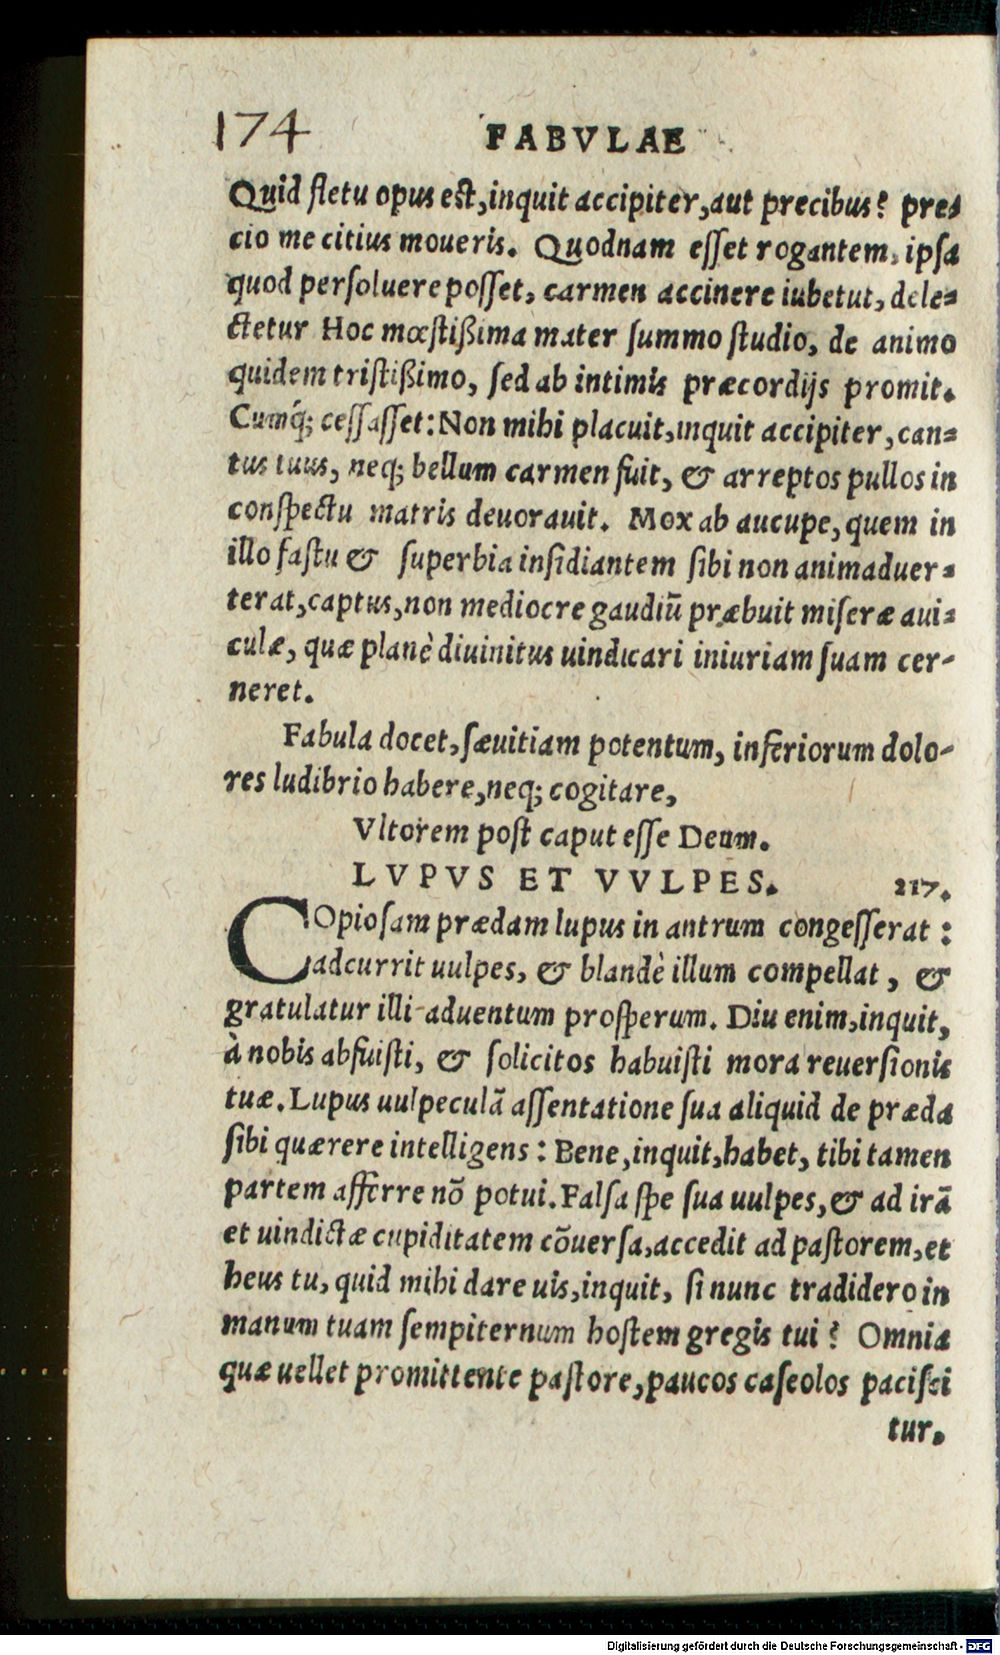 174
FABVLAE
Quid fletu opus est, inquit accipiter, aut precibus? pre=
cio me citius moueris. Quodnam esset rogantem, ipsa
quod persoluere posset, carmen accinere iubetut, dele=
ctetur Hoc mœstißima mater summo studio, de animo
quidem tristißimo, sed ab intimis præcordijs promit.
Cumq́; cessasset: Non mihi placuit, inquit accipiter, can=
tus tuus, neq; bellum carmen fuit, & arreptos pullos in
conspectu matris deuorauit. Mox ab aucupe, quem in
illo fastu & superbia insidiantem sibi non animaduer=
terat, captus, non mediocre gaudiũ præbuit miseræ aui=
culæ, quæ planè diuinitus uindicari iniuriam suam cer-
neret.
Fabula docet, sæuitiam potentum, inferiorum dolo-
res ludibrio habere, neq; cogitare,
Vltorem post caput esse Deum.
LVPVS ET VVLPES. 217.
COpiosam prædam lupus in antrum congesserat:
adcurrit uulpes, & blandè illum compellat, &
gratulatur illi aduentum prosperum. Diu enim, inquit,
à nobis abfuisti, & solicitos habuisti mora reuersionis
tuæ. Lupus uulpeculã assentatione sua aliquid de præda
sibi quærere intelligens: Bene, inquit, habet, tibi tamen
partem afferre nõ potui. Falsa spe sua uulpes, & ad irã
et uindictæ cupiditatem cõuersa, accedit ad pastorem, et
heus tu, quid mihi dare uis, inquit, si nunc tradidero in
manum tuam sempiternum hostem gregis tui? Omnia
quæ uellet promittente pastore, paucos caseolos pacisci
tur.
Digitalisierung gefördert durch die Deutsche Forschungsgemeinschaft - DFG